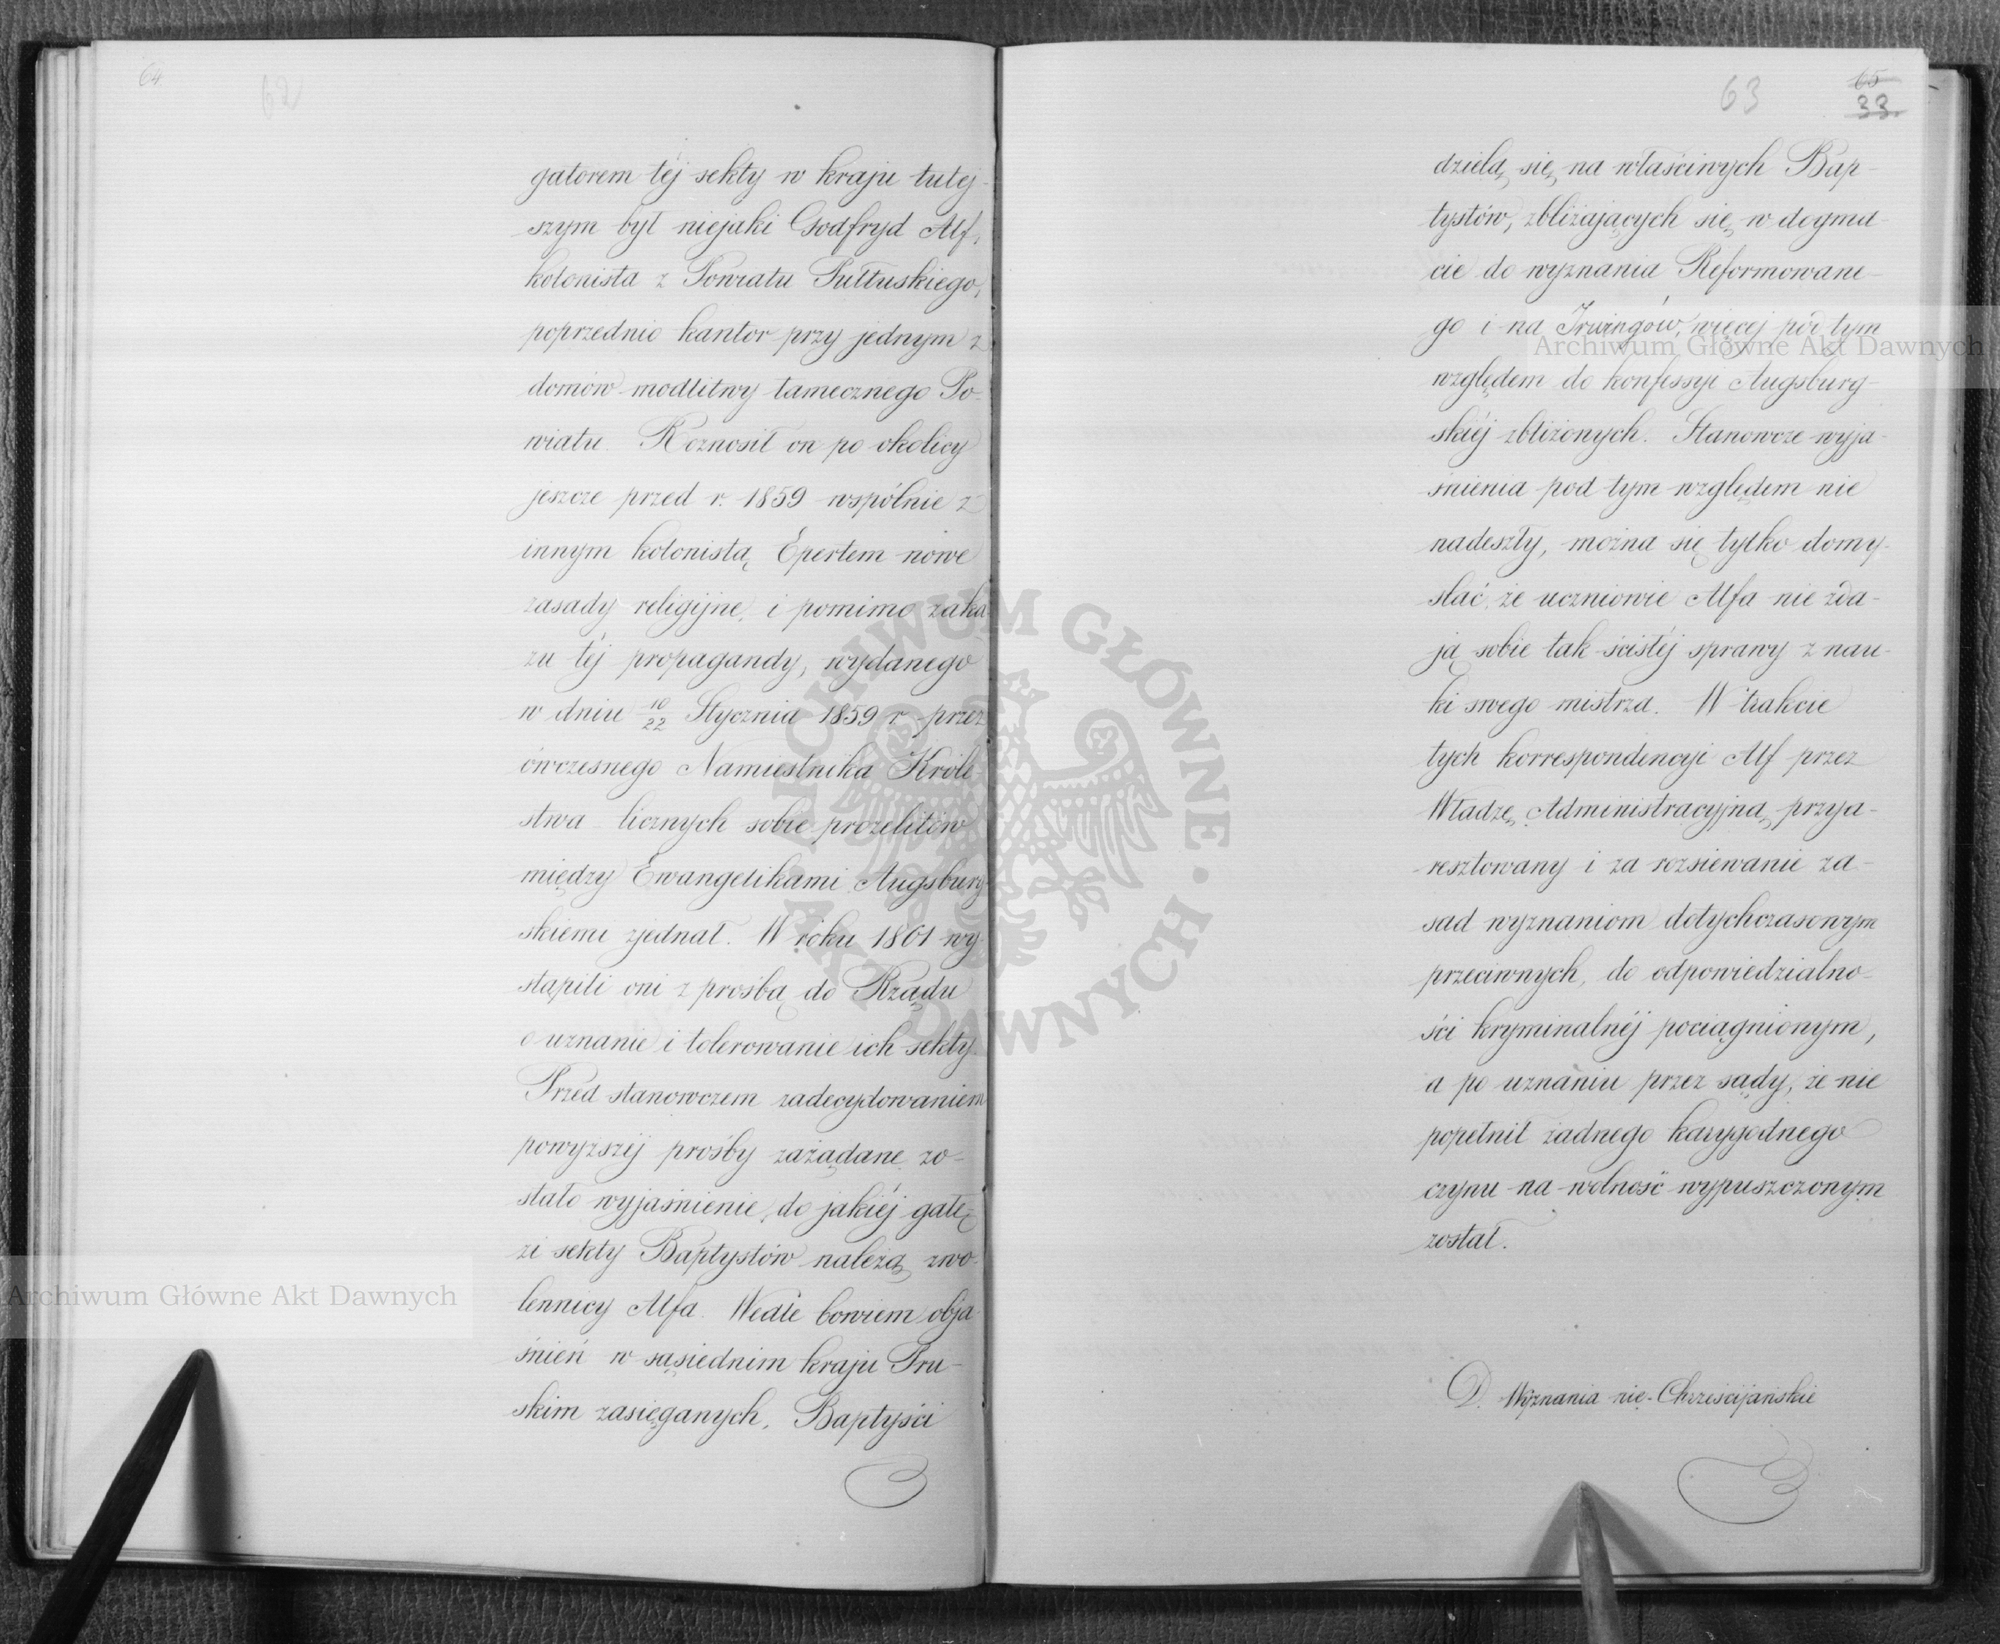 64
62
gatorem téj sekty w kraju tutej-
szym był niejaki Godfryd Alf,
kolonista z Powiatu Pułtuskiego,
poprzednio kantor przy jednym z
domów modlitwy tamecznego Po-
wiatu. Roznosił on po okolicy
jeszcze przed r. 1859 wspólnie z
innym kolonistą Epertem nowe
zasady religijne, i pomimo zaka
zu téj propagandy, wydanego
w dniu 10/22 Stycznia 1859 r. przez
ówczesnego Namiestnika Króle
stwa licznych sobie prozelitów
między Ewangelikami Augsburg-
skiemi zjednał. W roku 1861 wy-
stąpili oni z prośbą do Rządu
o uznanie i tolerowanie ich sekty.
Przed stanowczem zadecydowaniem
powyższéj prośby zażądane zo-
stało wyjaśnienie, do jakiéj gałę-
zi sekty Baptystów należą zwo-
lennicy Alfa. Wedle bowiem obja-
śnień w sąsiednim kraju Pru-
skim zasięganych, Baptyści
63
65
33
dzielą się na właściwych Bap-
tystów, zbliżających się w dogma
cie do wyznania Reformowane-
go i na Irwingów, więcej pod tym
względem do konfessyi Augsburg-
skiéj zbliżonych. Stanowcze wyja-
śnienia pod tym względem nie
nadeszły, można się tylko domy-
ślać, że uczniowie Alfa nie zda-
ją sobie tak ścisłéj sprawy z nau-
ki swego mistrza. W trakcie
tych korrespondencyi Alf przez
Władzę Administracyjną przya-
resztowany i za rozsiewanie za-
sad wyznaniom dotychczasowym
przeciwnych, do odpowiedzialno-
ści kryminalnéj pociągnionym,
a po uznaniu przez sądy, że nie
popełnił żadnego karygodnego
czynu na wolność wypuszczonym
został.
D. Wyznania nie-Chrześcijańskie
Archiwum Główne Akt Dawnych
Archiwum Główne Akt Dawnych
ARCHIWUM GŁÓWNE AKT DAWNYCH